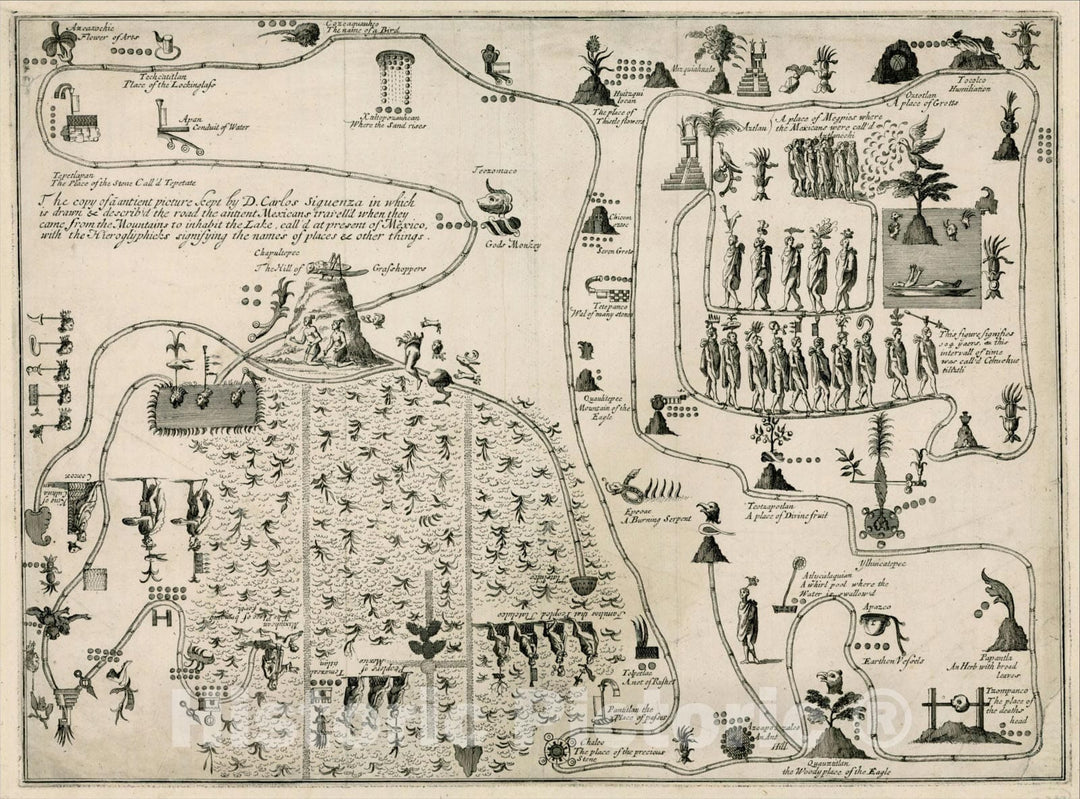 Azcaxochic
Flower of Ants
Cozcaquauhco
The name of a Bird
Techcatitlan
Place of the Lookinglass
Apan
Conduit of Water
Xaltepozauhcan
Where the Sand rises
Tepetlapan
The Place of the Stone Call'd Tepetate
The copy of á antient picture kept by D. Carlos Siguenza in which
is drawn & describ'd the road the antient Mexicans travell'd when they
came from the Mountains to inhabit the Lake, call'd at present of Mexico,
with the Hieroglyphicks signifying the names of places & other things.
Teozomaco
Gods Monkey
Chapultepec
The Hill of Grasshoppers
Huitzqui
locan
The place of
Thistle flowers
Mizquiahuala
Oztotlan
A place of Grotts
Tocolco
Humiliation
Aztlan
A place of Megpies where
the Mexicans were call'd
Aztlanechi
Chicom
oztoc
Seven Grots
Tetepanco
Wal of many stones
Quauhtepec
Mountain of the
Eagle
This figure signifies
104 years, & this
intervall of time
was call'd Cehuehue
tilitzli
Epcoac
A Burning Serpent
Teotzapotlan
A place of Divine fruit
Ylhuicatepec
Atlucalaquian
A whirl pool where the
Water is swallow'd
Apazco
Earthen Vessels
Papantla
An Herb with broad
leaves
Tzompanco
The place of
the deaths
head
Tolpetlac
A net of Rushes
Pantitlan the
Place of passage
Chalco
The place of the precious
Stone
Azcapotzalco
An Ant
Hill
Quauxtitlan
the Woody place of the Eagle
Tlatelulco
Peoples of
Mexico
Historic Pictoric ®